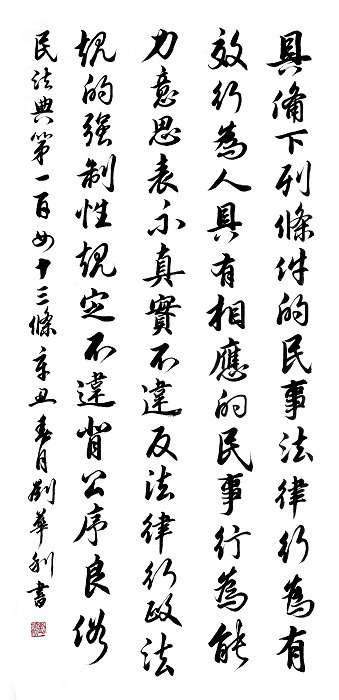 具備下列條件的民事法律行為有
效行為人具有相應的民事行為能
力意思表示真實不違反法律行政法
規的强制性規定不違背公序良俗
民法典第一百四十三條辛丑春月劉華利書